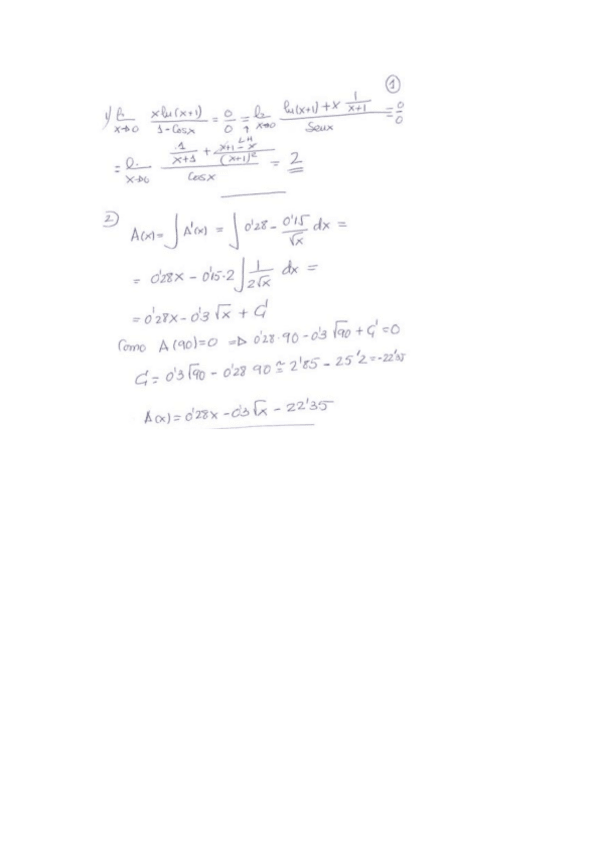 ①
1) lim x→0 xln(x+1)/1-Cosx = 0/0 = ↑ LH lim x→0 ln(x+1)+x 1/x+1 / Senx = 0/0
= lim x→0 1/x+1 + x+1-x/(x+1)² / Cosx = 2
2) A(x)= ∫A'(x) = ∫0'28 - 0'15/√x dx =
= 0'28x - 0'15·2∫1/2√x dx =
= 0'28x - 0'3√x + C
Como A(90)=0 ⇒ 0'28·90 - 0'3√90 + C = 0
C = 0'3√90 - 0'28 90 ≅ 2'85 - 25'2 = -22'35
A(x) = 0'28x - 0'3√x - 22'35